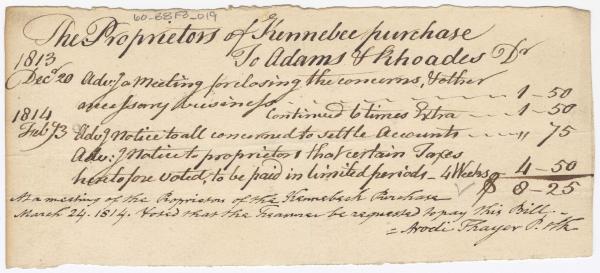 60-68F3-019
The Proprietors of Kennebec purchase
To Adams & Rhoades Dr
1813
Decr 20 Adv.g a Meeting for closing the concerns, & other
necessary business 1-50
1814 Continued 6 times Extra 1-50
Adv.g Notice to all concerned to settle Accounts " 75
Adv.g Notice to proprietors that certain Taxes
heretofore voted, to be paid in limited periods - 4 Weeks 4-50
$ 8-25
At a meeting of the Proprietors of the Kennebeck Purchase
March 24. 1814. Voted that the Treasurer be requested to pay this Bill. -
Arodi Thayer P. Clk